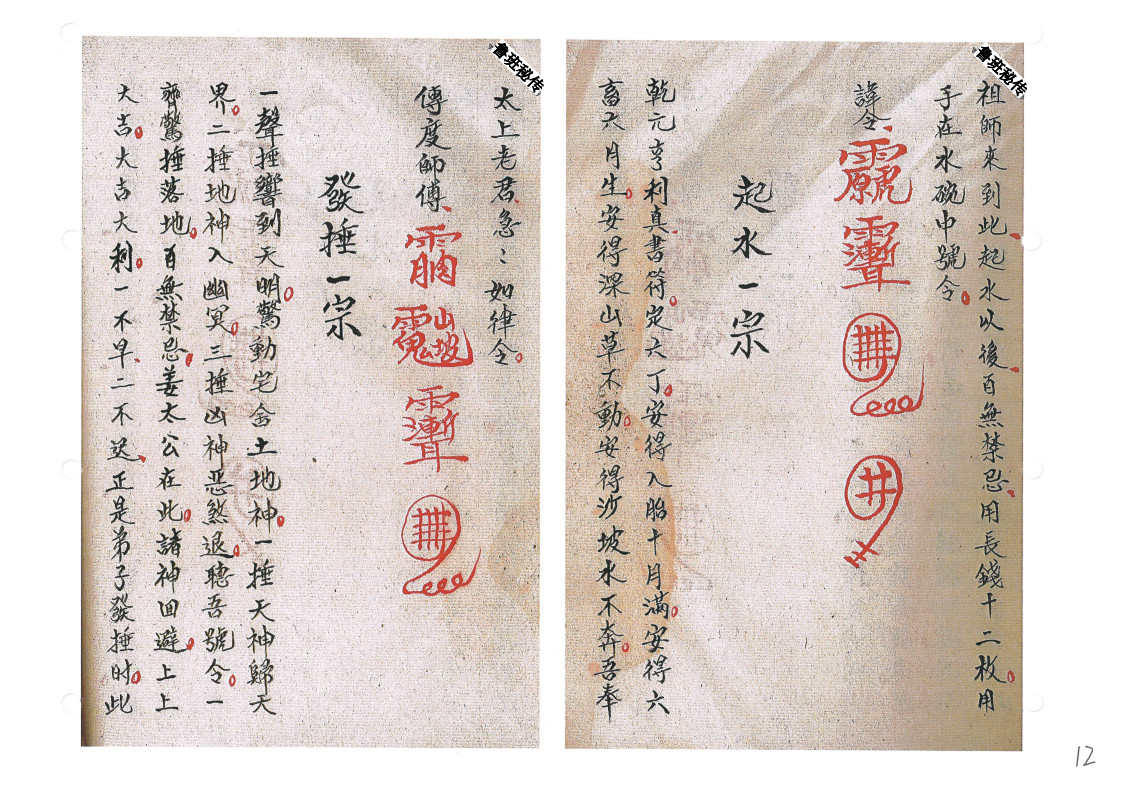 魯班秘传
祖師來到此起水以後百無禁忌用長錢十二枚用
手在水碗中號令
諱令
起水一宗
乾元亨利真書符定六丁安得入胎十月滿安得六
畜六月生安得深山草不動安得沙坡水不奔吾奉
魯班秘传
太上老君急〻如律令
傳度師傅
發捶一宗
一聲捶響到天明驚動宅舍土地神一捶天神歸天
界二捶地神入幽冥三捶凶神惡煞退聽吾號令一
齊驚捶落地百無禁忌姜太公在此諸神回避上上
大吉大吉大利一不早二不迟正是弟子發捶时此
12